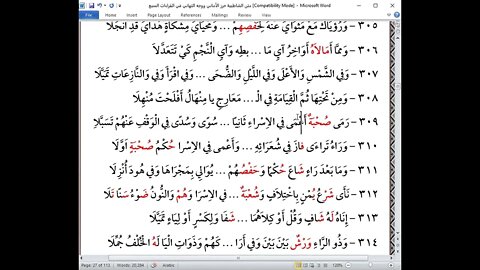 متن الشاطبية حرز الأماني ووجه التهاني في القراءات السبع [Compatibility Mode] - Microsoft Word
٣٠٥ - وَرُؤْيَاكَ مَعْ مَثْوَايَ عَنْهُ لِحَفْصِهِمْ ... وَمَحْيَايَ مِشْكَاةٍ هُدَايَ قَدِ انْجَلَا
٣٠٦ - وَمِمَّا أَمَالَاهُ أَوَاخِرُ آيِ مَا ... بِطهَ وَآيِ النَّجْمِ كَيْ تَتَعَدَّلَا
٣٠٧ - وَفِي الشَّمْسِ وَالأَعْلَى وَفِي اللَّيْلِ وَالضُّحَى ... وَفِي اقْرَأَ وَفِي وَالنَّازِعَاتِ تَمَيَّلَا
٣٠٨ - وَمِنْ تَحْتِهَا ثُمَّ الْقِيَامَةِ فِي الْـ ... مَعَارِجِ يا مِنْهَالُ أَفْلَحْتَ مُنْهِلَا
٣٠٩ - رَمَى صُحْبَةٌ أَعْمَى فِي الإِسْراءِ ثَانِيَا ... سُوًى وَسُدًى فِي الْوَقْفِ عَنْهُمْ تَسَبَّلَا
٣١٠ - وَرَاءُ تَرَاءَى فازَ فِي شُعَرَائِهِ ... وَأَعْمى فِي الإِسْرا حُكْمُ صُحْبَةٍ أَوَّلَا
٣١١ - وَمَا بَعْدَ رَاءٍ شَاعَ حُكْمًا وَحَفْصُهُمْ ... يُوَالِي بِمَجْرَاهَا وَفِي هُودَ أُنْزِلَا
٣١٢ - نَأَى شَرْعُ يُمْنٍ بِاخْتِلَافٍ وَشُعْبَةٌ ... فِي الإِسْرَا وَهُمْ وَالنُّونُ ضَوْءُ سَنًا تَلَا
٣١٣ - إِنَاهُ لَهُ شَافٍ وَقُلْ أَوْ كِلاَهُمَا ... شَفَا وَلِكَسْرٍ أَوْ لِيَاءٍ تَمَيَّلَا
٣١٤ - وَذُو الرَّاءِ وَرْشٌ بَيْنَ بَيْنَ وَفِي أَرَا ... كَهُمْ وَذَوَاتِ الْيَا لَهُ الْخُلْفُ جُمِّلَا
Page: 27 of 113 Words: 20,284 Arabic 120%